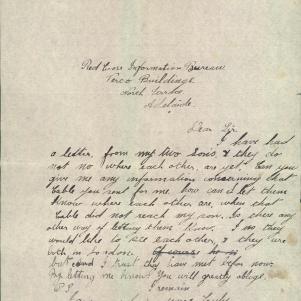 Red Cross Information Bureau
Verco Buildings
North Terrace
Adelaide.
Dear Sir
I have had
a letter, from my two Sons, & they do
not no where each other are yet. Can you
give me any information concerning that
Cable you sent for me, how can I let them
Know where each other are, when that
Cable did not reach my son. Is there any
other way of letting them Know. I no they
would like to see each other, & they are
both in London.
but I trust they have met by now.
By letting me Know You will greatly oblige.
I remain